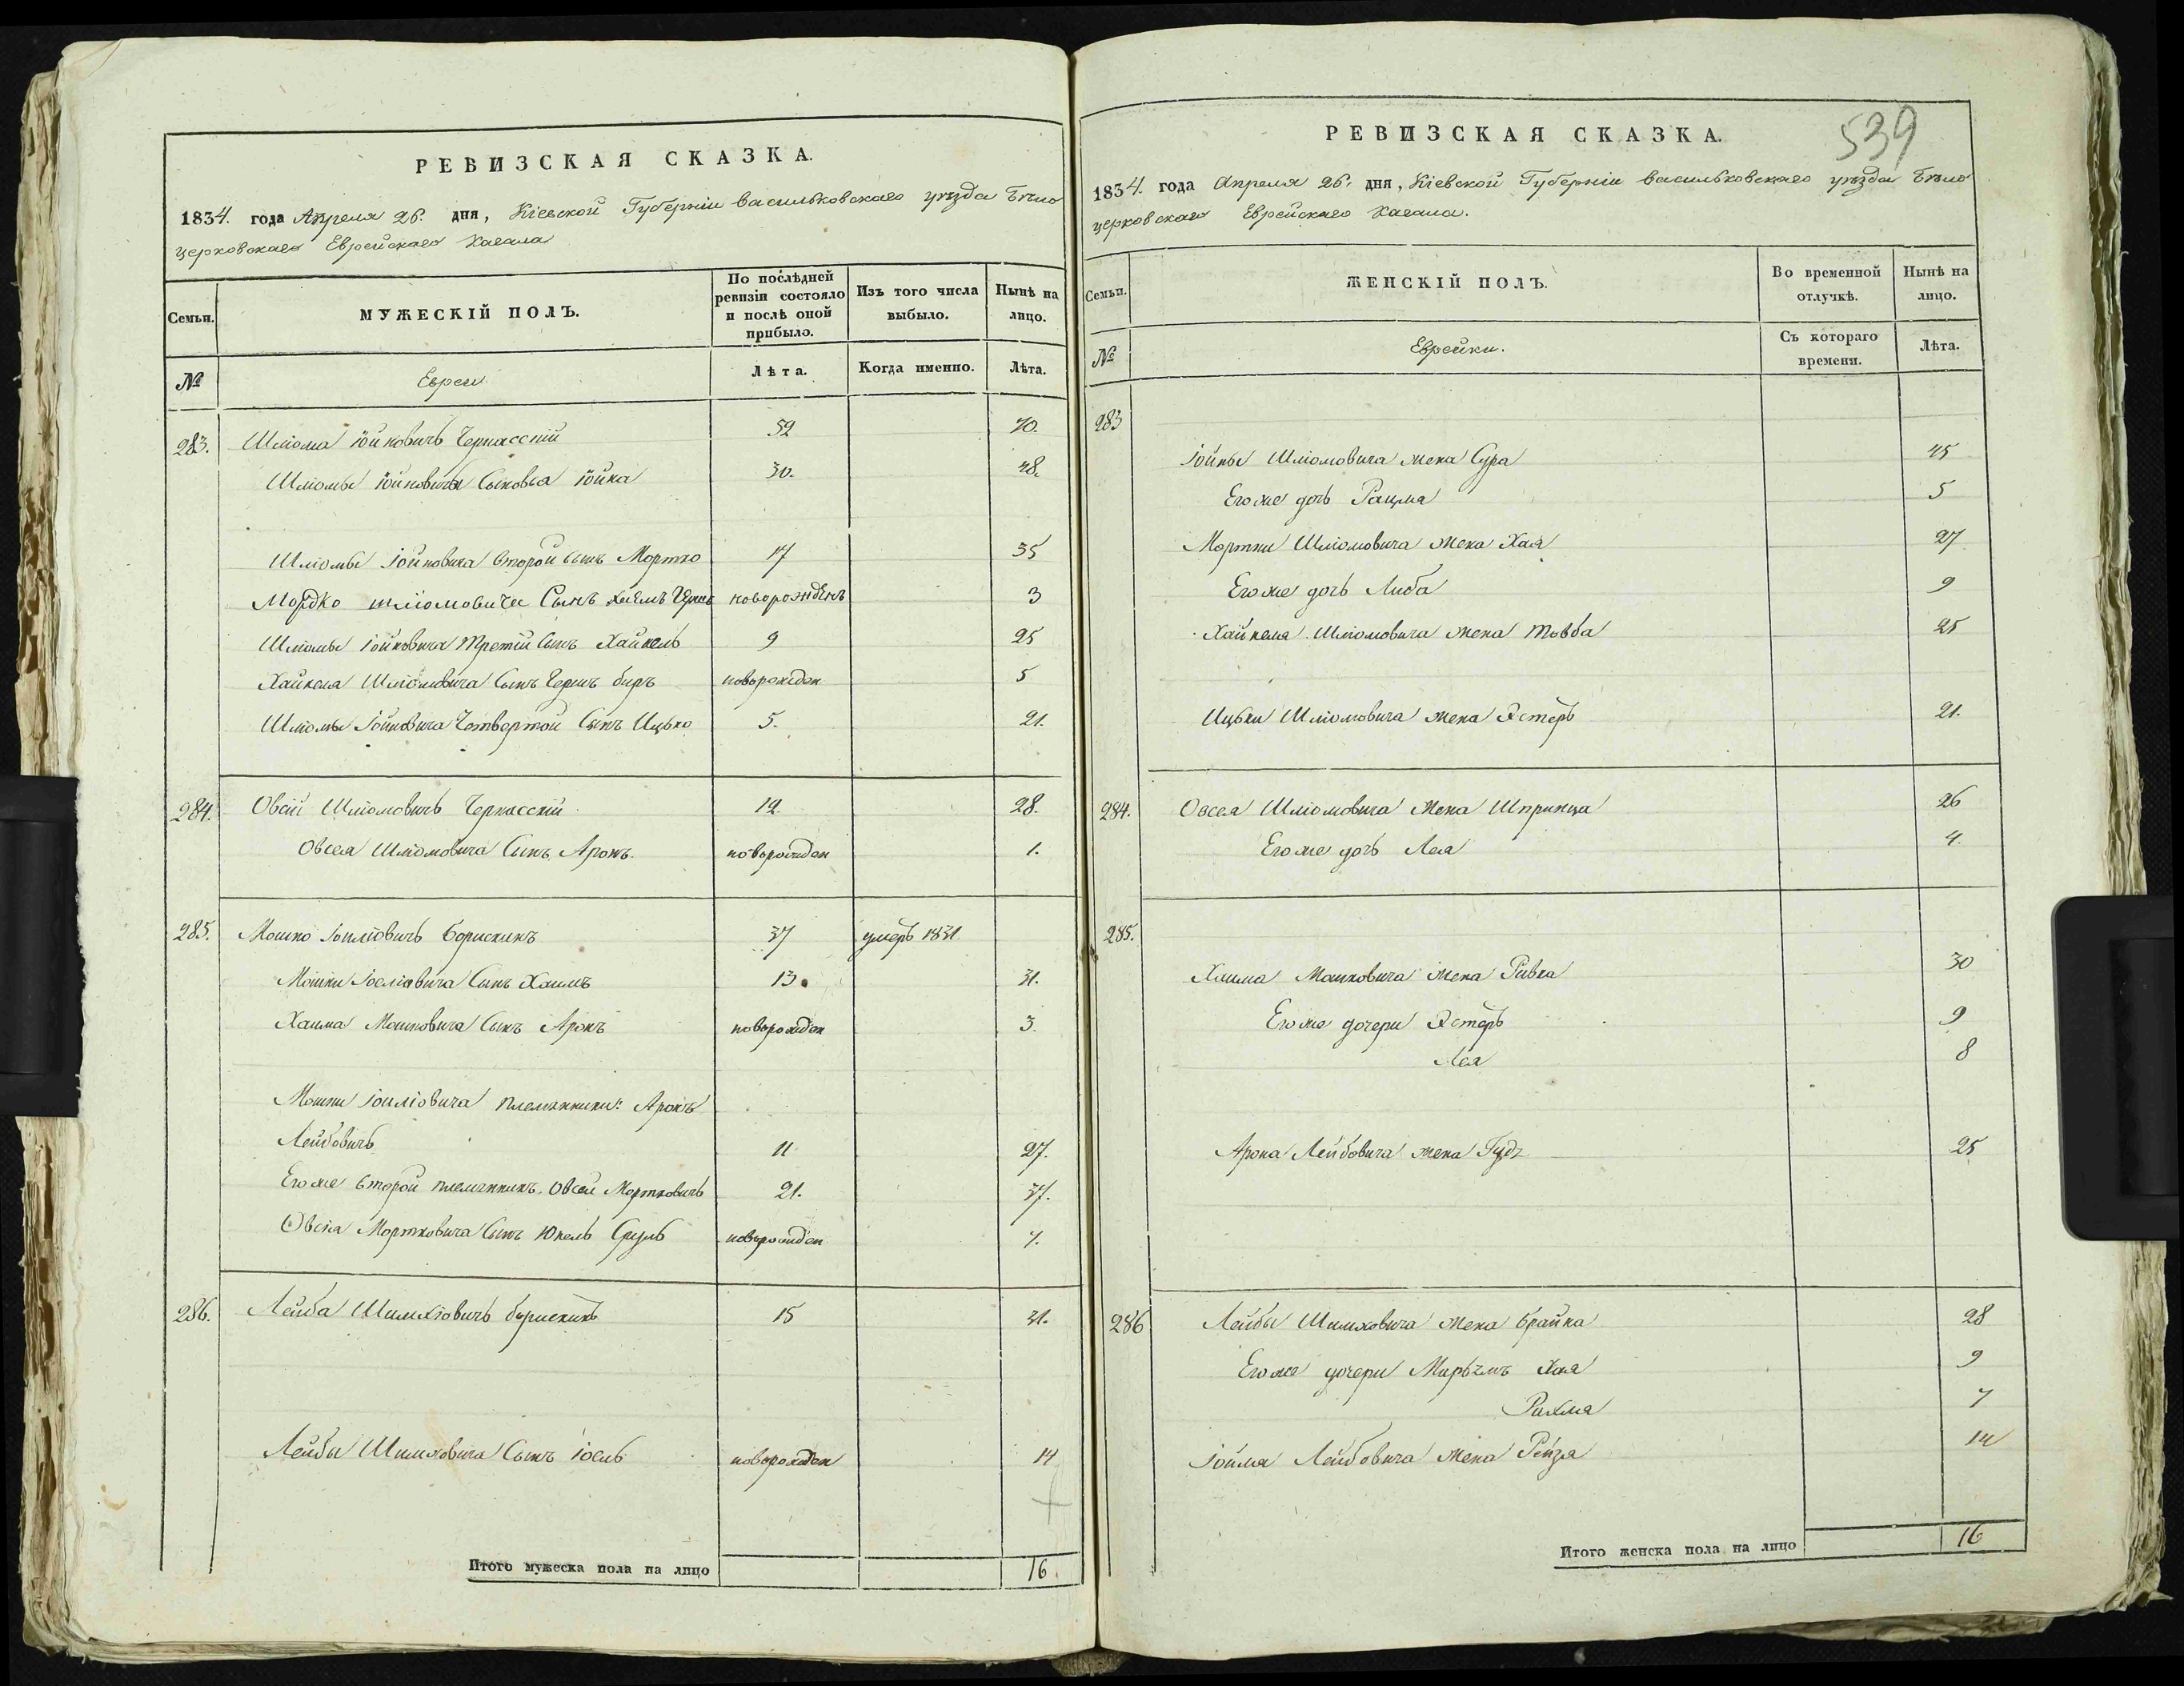 РЕВИЗСКАЯ СКАЗКА.
1834. года Апреля 26. дня, Кіевской Губерніи васильковскаго уезда Бѣло
церковскаго Еврейскаго Кагала
Семьи. МУЖЕСКІЙ ПОЛЪ. По послѣдней ревизіи состояло и послѣ оной прибыло. Изъ того числа выбыло. Нынѣ на лицо.
№ Евреи Лѣта. Когда именно. Лѣта.
283. Шліома Іойновичъ Черкасскій 52 70.
Шліомы Іойновича Сыновья Іойна 30. 48.
Шліомы Іойновича Второй сынъ Мортко 17 35
Мордко шліомовича Сынъ новорожденъ 3
Шліомы Іойновича Третій Сынъ Хайкель 9 25
Хайкеля Шліомовича Сынъ Гершъ беръ новорожден 5
Шліомы Іойновича Четвертой Сынъ Ицько 5. 21.
284. Овсій Шліомовичъ Черкасскій 12 28.
Овсея Шліомовича Сынъ Аронъ новорожден 1.
285. Мошко Іоиліовичъ Борискинъ 37 умеръ 1831
Мошки Іоеліовича Сынъ Хаимъ 13. 31.
Хаима Мошковича Сынъ Аронъ новорожден 3.
Мошки Іоиліовича племянники: Аронъ
Лейбовичъ 11 27.
Его же Второй племянникъ Овсей Мортковичъ 21. 37.
Овсія Мортковича Сынъ Юкель новорожден 7.
286. Лейба Шимхіовичъ борискинъ 15 31.
Лейбы Шимховича Сынъ Іоель новорожден 14
Итого мужеска пола на лицо 16.
539
РЕВИЗСКАЯ СКАЗКА.
1834. года Апреля 26. дня, Кіевской Губерніи васильковскаго уезда Бѣло
церковскаго Еврейскаго Кагала.
Семьи. ЖЕНСКІЙ ПОЛЪ. Во временной отлучкѣ. Нынѣ на лицо.
№ Еврейки. Съ котораго времени. Лѣта.
283
Іойны Шліомовича жена Сура 45
Его же дочь Рахма 5
Мортки Шліомовича жена Хая 27
Его же дочь Либа 9
Хайкеля Шліомовича жена Товба 25
Ицьки Шліомовича жена Эстеръ 21.
284. Овсея Шліомовича жена Шпринца 26
Его же дочь Лея 4.
285.
Хаима Мошковича жена Ривка 30
Его же дочери Эстеръ 9
Лея 8
Арона Лейбовича жена 25
286 Лейбы Шимховича жена Брайна 28
Его же дочери Мирьямъ Хая 9
Рахма 7
Іоиля Лейбовича жена Рейза 14
Итого женска пола на лицо 16